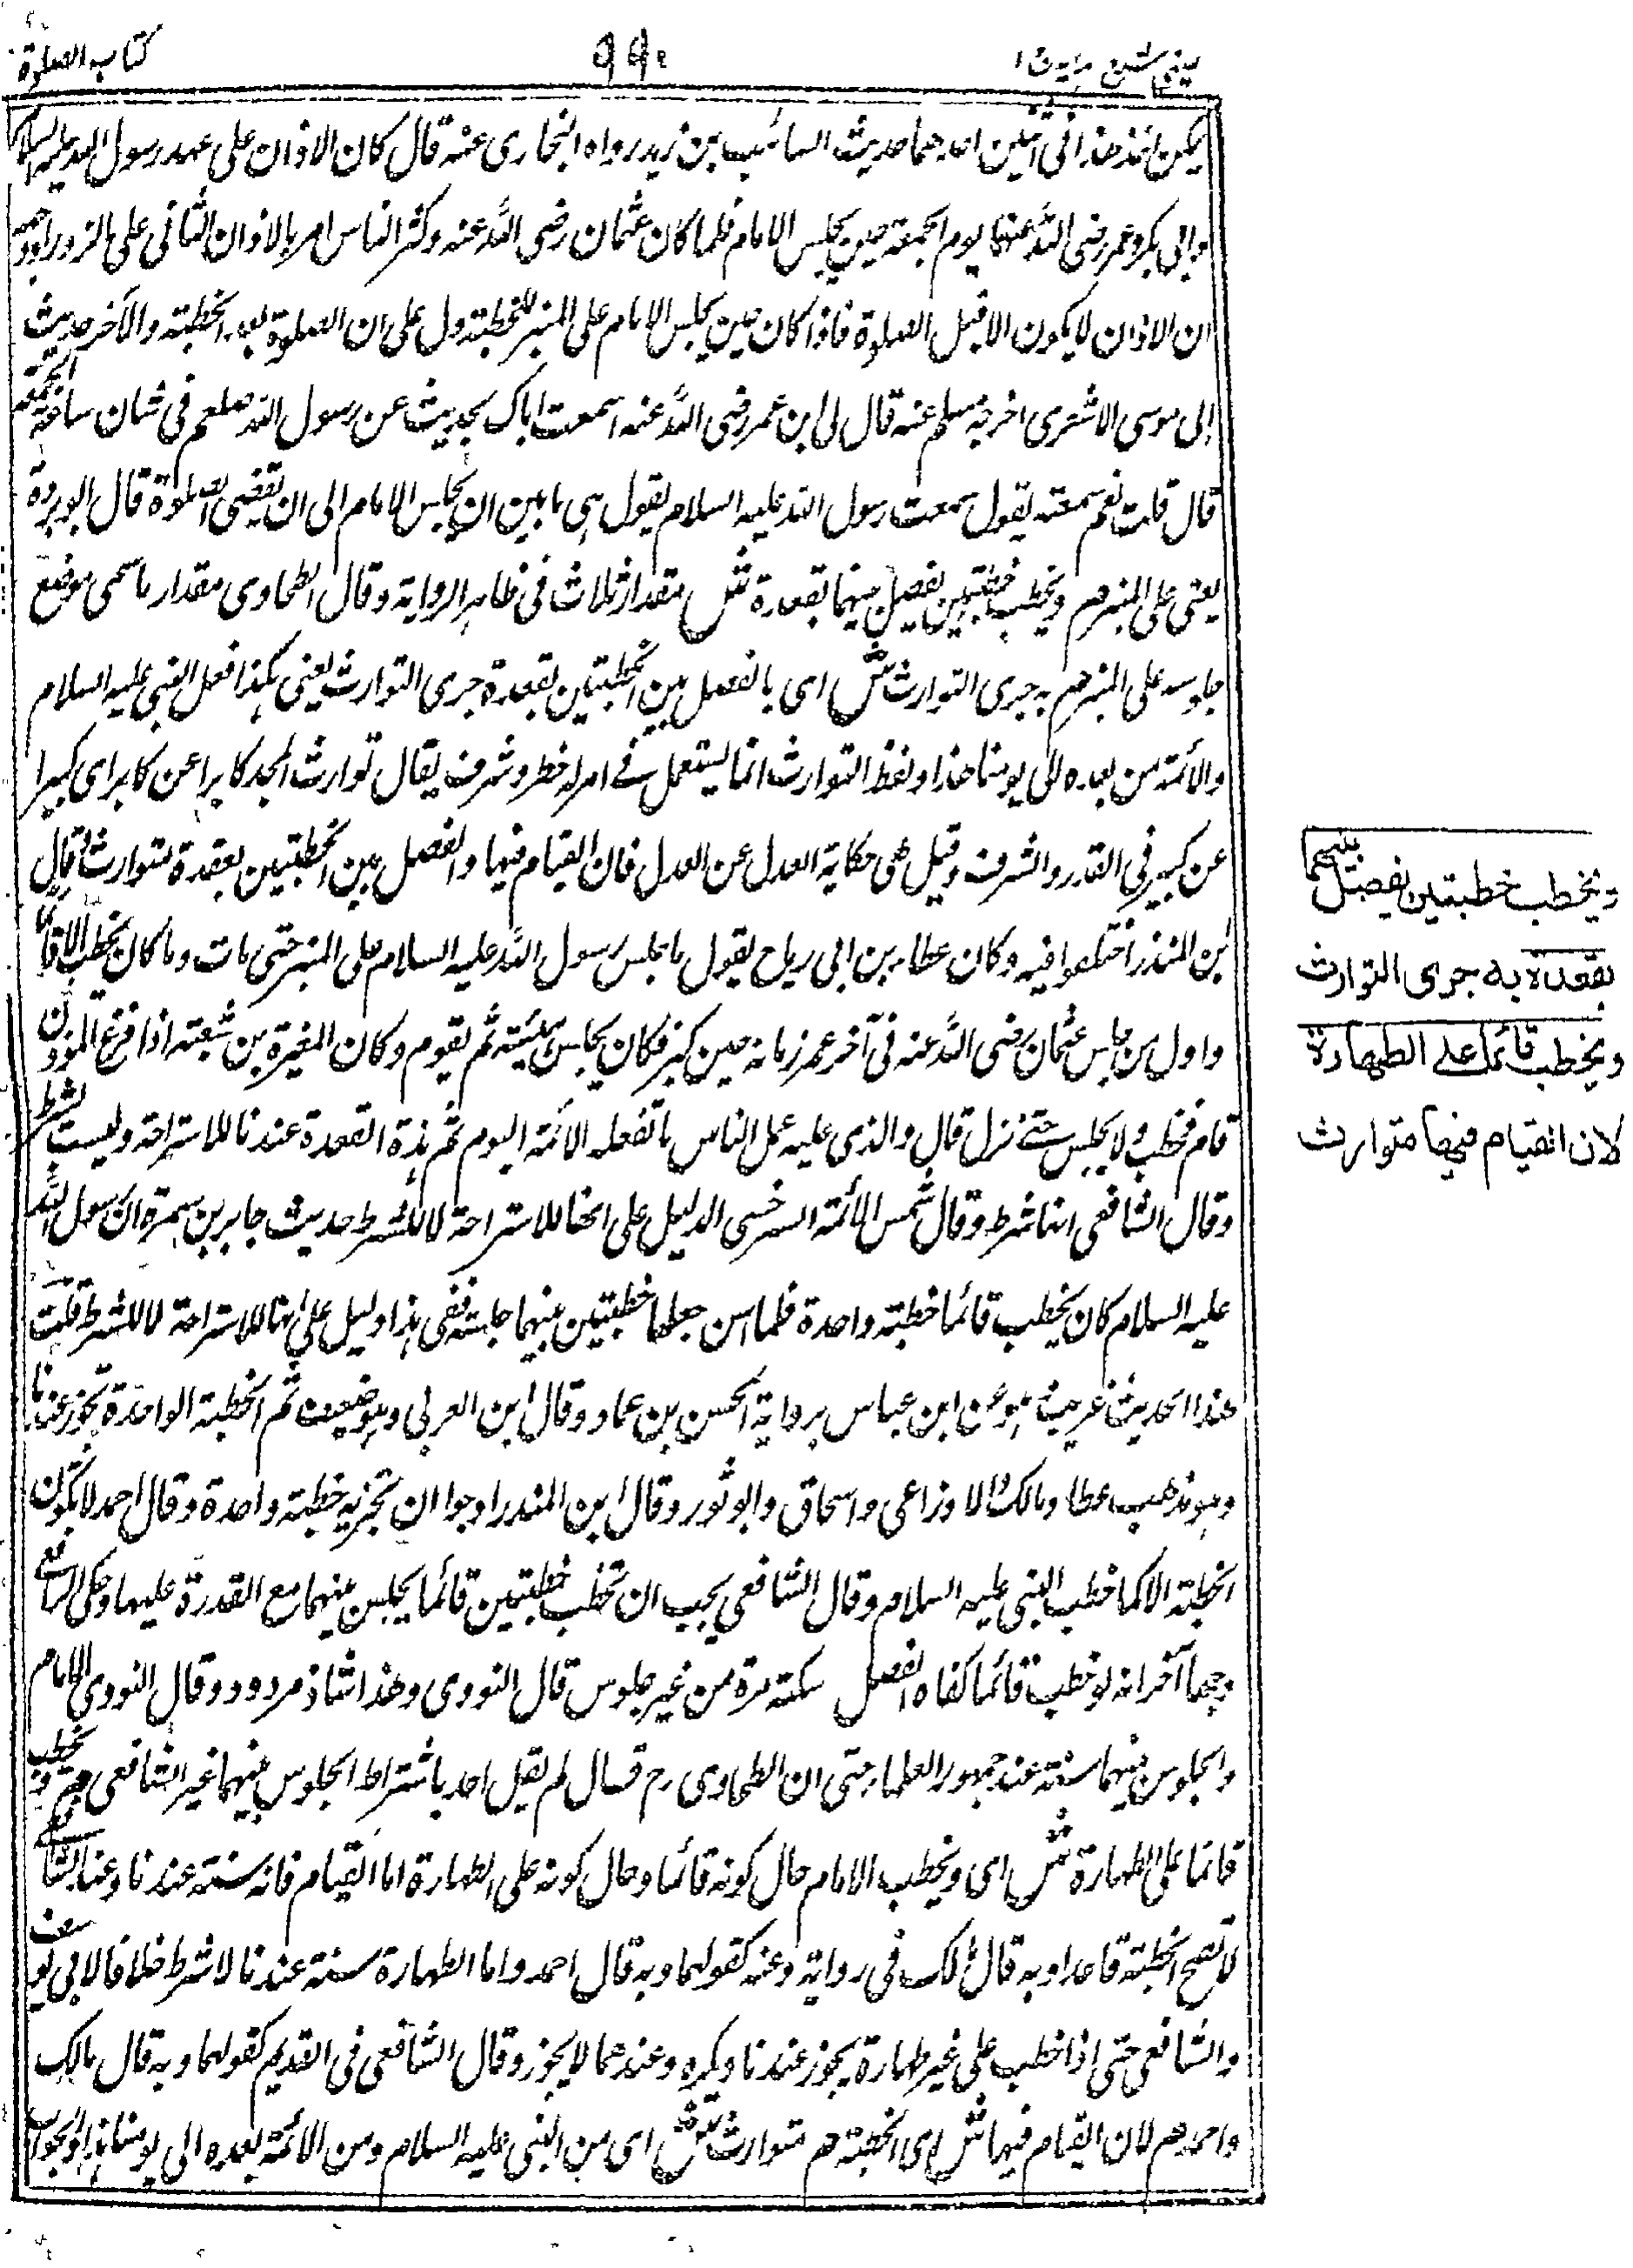 عینی شرح ہدایہ ج ۱
۹۹۰
كتاب الصلوة
يمكن اخذ هذا من حديثين احدهما حديث السائب بن يزيد رواه البخارى عنه قال كان الاذان على عهد رسول الله عليه السلام
وابى بكر وعمر رضى الله عنهما يوم الجمعة حين يجلس الامام فلما كان عثمان رضى الله عنه وكثر الناس امر بالاذان الثانى على الزوراء
ان الاذان لا يكون الا قبل الصلوة فاذا كان حين يجلس الامام على المنبر للخطبة دل على ان الصلوة بعد الخطبة والآخر حديث
ابى موسى الاشعرى اخرجه مسلم عنه قال لى ابن عمر رضى الله عنه اسمعت اباك يحديث عن رسول الله صلعم فى شان ساعة الجمعة
قال قلت نعم سمعته يقول سمعت رسول الله عليه السلام يقول هى ما بين ان يجلس الامام الى ان تقضى الصلوة قال ابو بردة
يعنى على المنبر هم ويخطب خطبتين يفصل بينهما بقعدة ش مقدار ثلاث فى ظاهر الرواية وقال الطحاوى مقدار ما سمى موضع
جلوسه على المنبر هم به جرى التوارث ش اى بالفصل بين الخطبتين بقعدة جرى التوارث يعنى هكذا فعل النبى عليه السلام
والائمة من بعده الى يومنا هذا ولفظ التوارث انما يستعمل فى امر له خطر وشرف يقال توارث المجد كابرا عن كابر اى كبيرا
عن كبير فى القدر والشرف وقيل هى حكاية العدل عن العدل فان القيام فيها والفصل بين الخطبتين بقعدة متوارث وقال
ابن المنذر اختلفوا فيه وكان عطاء بن ابى رباح يقول ما جلس رسول الله عليه السلام على المنبر حتى مات وما كان يخطب الا قائما
واول من جلس عثمان رضى الله عنه فى آخر عمر زمانه حين كبر فكان يجلس هنيئة ثم يقوم وكان المغيرة بن شعبة اذا فرغ المؤذن
قام فخطب ولا يجلس حتى نزل قال والذى عليه عمل الناس ما تفعله الائمة اليوم ثم هذه القعدة عندنا للاستراحة وليست بشرط
وقال الشافعى انها شرط وقال شمس الائمة السرخسى الدليل على انها للاستراحة لا للشرط حديث جابر بن سمرة ان رسول الله
عليه السلام كان يخطب قائما خطبة واحدة فلما اسن جعلها خطبتين بينهما جلسة ففى هذا دليل على انها للاستراحة لا للشرط قلت
هذا الحديث غريب هو عن ابن عباس برواية الحسن بن عماد وقال ابن العربى وهو ضعيف ثم الخطبة الواحدة تجوز عندنا
وهو مذهب عطا ومالك والاوزاعى واسحاق وابو ثور وقال ابن المنذر ارجوا ان تجزيه خطبة واحدة وقال احمد لا تكون
الخطبة الا كما خطب النبى عليه السلام وقال الشافعى يجب ان تخطب خطبتين قائما يجلس بينهما مع القدرة عليها وحكى الرافعى
وجها آخر انه لو خطب قائما كفاه الفصل سكتة مرة من غير جلوس قال النووى وهذا شاذ مردود وقال النووى الامام
والجلوس بينهما سنة عند جمهور العلماء حتى ان الطحاوى رح قال لم يقل احد باشتراط الجلوس بينهما غير الشافعى هم ويخطب
قائما على الطهارة ش اى ويخطب الامام حال كونه قائما وحال كونه على الطهارة اما القيام فانه سنة عندنا وعند الشافعى
لا تصح الخطبة قاعدا وبه قال مالك فى رواية وعنه كقولهما وبه قال احمد واما الطهارة سنة عندنا لا شرط خلافا لابى يوسف
والشافعى حتى اذا خطب على غير طهارة يجوز عندنا ويكره وعندهما لا يجوز وقال الشافعى فى القديم كقولهما وبه قال مالك
واحمد هم لان القيام فيها ش اى الخطبة هم متوارث ش اى من النبى عليه السلام ومن الائمة بعده الى يومنا هذا والجواب
ويخطب خطبتين يفصل بينهما
بقعدة به جرى التوارث
ويخطب قائما على الطهارة
لان القيام فيهما متوارث